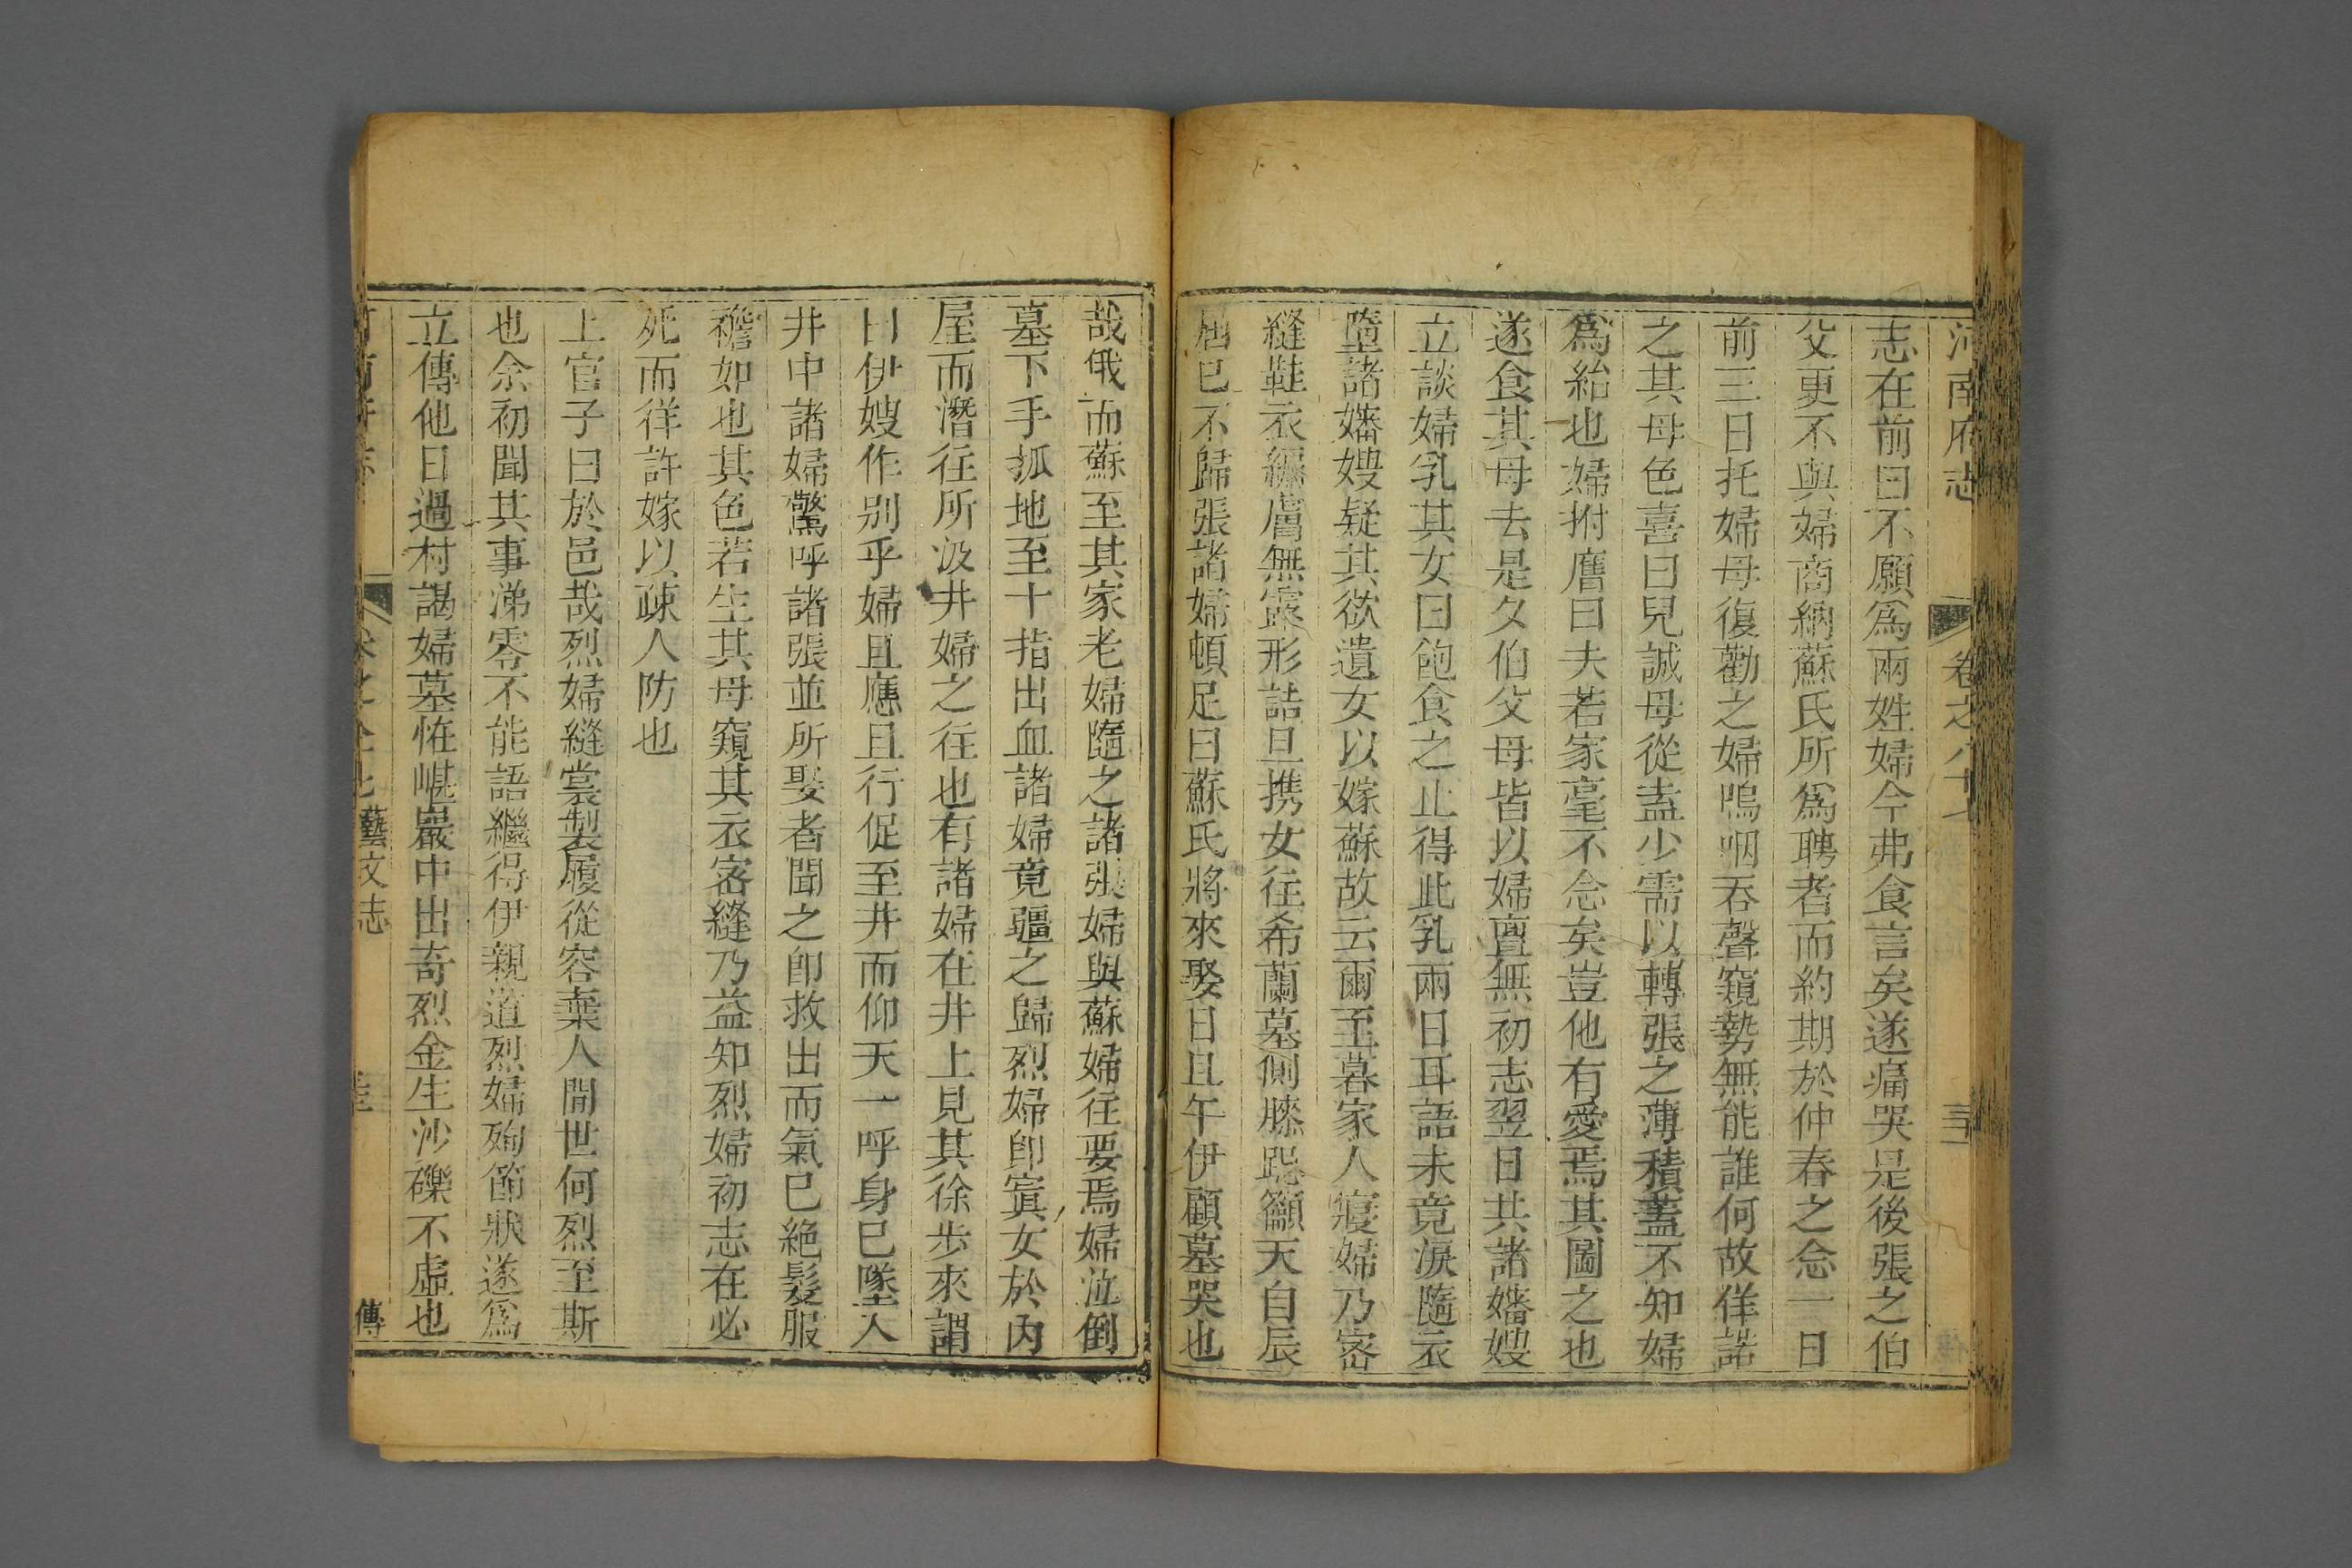 河南府志 卷之八十七 三十二
志在前曰不願爲兩姓婦今弗食言矣遂痛哭是後張之伯
父更不與婦商納蘇氏所爲聘者而約期於仲春之念一日
前三日托婦母復勸之婦嗚咽吞聲窺勢無能誰何故佯諾
之其母色喜曰兒誠母從盍少需以轉張之薄積蓋不知婦
爲紿也婦拊膺曰夫若家毫不念矣豈他有愛焉其圖之也
遂食其母去是夕伯父母皆以婦亶無初志翌日共諸嬸嫂
立談婦乳其女曰飽食之止得此乳兩日耳語未竟淚隨衣
墮諸嬸嫂疑其欲遺女以嫁蘇故云爾至暮家人寢婦乃密
縫鞋衣纏膚無露形詰旦携女往希蘭墓側膝跽籲天自辰
屆巳不歸張諸婦頓足曰蘇氏將來娶日且午伊顧墓哭也
哉俄而蘇至其家老婦隨之諸張婦與蘇婦往要焉婦泣倒
墓下手抓地至十指出血諸婦竟疆之歸烈婦卽寘女於內
屋而潛往所汲井婦之往也有諸婦在井上見其徐步來謂
曰伊嫂作别乎婦且應且行促至井而仰天一呼身已墜入
井中諸婦驚呼諸張並所娶者聞之卽救出而氣巳絶髮服
襜如也其色若生其母窺其衣密縫乃益知烈婦初志在必
死而徉許嫁以疎人防也
上官子曰於邑哉烈婦縫裳製履從容棄人間世何烈至斯
也余初聞其事涕零不能語繼得伊親道烈婦殉節狀遂爲
立傳他日過村謁婦墓恠嵁巖中出奇烈金生沙礫不虛也
藝文志 傳